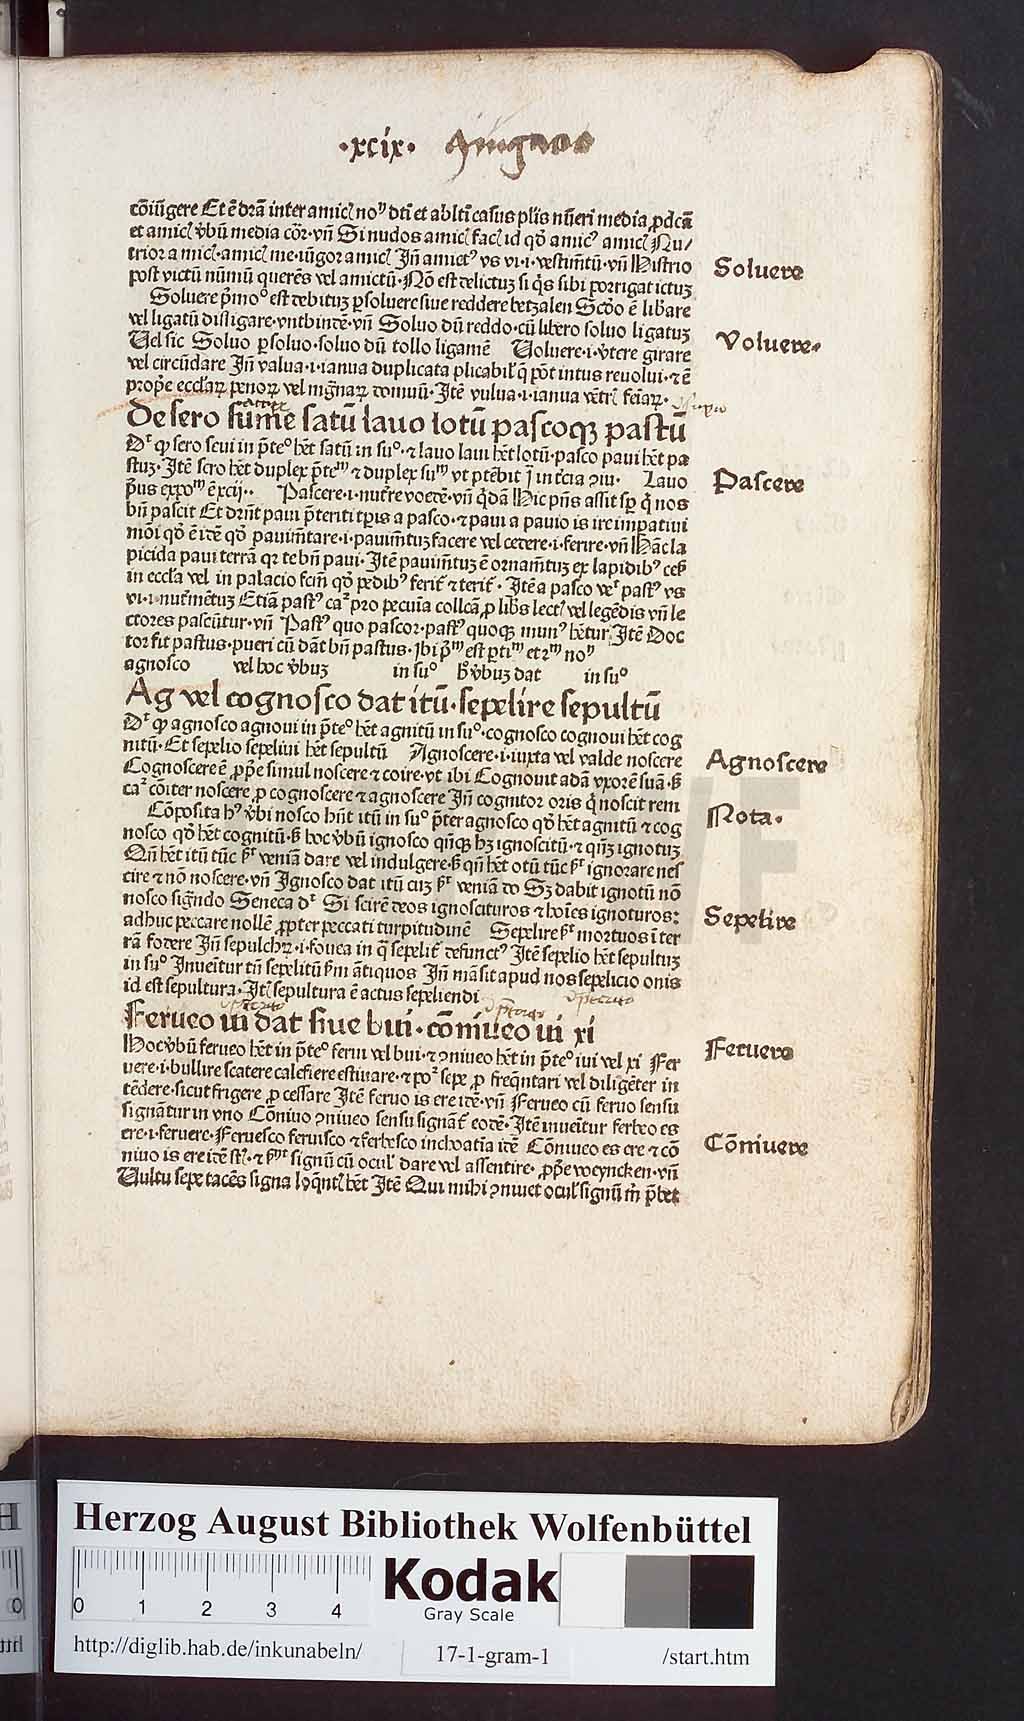 ·xcix·
cōiūgere Et ē dr̄a inter amicꝭ
et amicꝭ v̄bū media Si nudos amicꝭ facꝭ id qd̄ amicꝰ amicꝭ Nu/
trior a micꝭ·amicꝭ me·iūgor amicꝭ Jn̄ amictꝰ vs vi·i·vestim̄tū·vn̄ Histrio
post victū nūmū querēs vel amictū·Nō est delictuꝫ si q̇s sibi porrigat ictuꝫ
Soluere p̄moº est debituꝫ ꝑsoluere siue reddere betzalen Scd̄o ē lib̄are
vel ligatū disligare·vntbindē·vn̄ Soluo dū reddo·cū libero soluo ligatuꝫ
Uel sic Soluo ꝑsoluo·soluo dū tollo ligamē Uoluere·i·v̄tere girare
vel circūdare Jn̄ valua·i·ianua duplicata plicabil' intus reuolui·⁊ ē
vel domuū·Jtē vulua·i·ianua
De sero sume satū lauo lotū pascoqꝫ pastū
sero seui in p̄teº h̄et satū in suº·⁊ lauo laui h̄et lotū·pasco paui h̄et pa
stuꝫ·Jtē sero h̄et duplex p̄teᵐ ⁊ duplex suᵐ vt Lauo
p̄us expoᵐ ē xcij·· Pascere·i·nut̄re voedē·vn̄ q̇dā Hic assit q̇ nos
bn̄ pascit Et paui p̄teriti tꝑis a pasco·⁊ paui a pauio is ire impatiui
mōi qd̄ ē idē qd̄ pauim̄tare·i·pauim̄tuꝫ facere vel cedere·i·ferire·vn̄ Hāc la
picida paui terrā te bn̄ paui·Jtē pauim̄tuꝫ ē ornam̄tuꝫ ex lapidibꝰ
in eccl'a vel in palacio qd̄ pedibꝰ ferit̄ ⁊ terit̄·Jtē a pasco pastꝰ vs
vi·i·nut̄mētuꝫ Etiā pastꝰ pro pecuīa vel legēdis vn̄ le
ctores pascūtur·vn̄ Pastꝰ quo pascor·pastꝰ quoqꝫ munꝰ h̄etur Jtē Doc
tor fit pastus·pueri cū dāt bn̄ pastus·
agnosco vel hoc v̄buꝫ in suº v̄buꝫ dat in suº
Ag vel cognosco dat itū·sepelire sepultū
agnosco agnoui in p̄teº h̄et agnitū in suº·cognosco cognoui h̄et cog
nitū·Et sepelio sepeliui h̄et sepultū Agnoscere·i·iuxta vel valde noscere
Cognoscere ē ꝓpe simul noscere ⁊ coire·vt ibi Cognouit adā vxorē suā·
cōiter noscere ꝓ cognoscere ⁊ agnoscere Jn̄ cognitor oris q̇ noscit rem
Cōposita nosco hn̄t itū in suº p̄ter agnosco qd̄ h̄et agnitū ⁊ cog
nosco qd̄ h̄et cognitū· hoc v̄bū ignosco ignoscitū·⁊ ignotuꝫ
Qn̄ h̄et itū tūc veniā dare vel indulgere· qn̄ h̄et otū tūc ignorare nes
cire ⁊ nō noscere·vn̄ Jgnosco dat itū cuꝫ veniā do Sꝫ dabit ignotū nō
nosco signdo Seneca Si scirē deos ignoscituros ⁊ hoīes ignoturos:
adhuc peccare nollē ꝓpter peccati turpitudinē Sepelire mortuos ī ter
rā fodere Jn̄ ·i·fouea in sepelit̄ defunctꝰ Jtē sepelio h̄et sepultuꝫ
in suº Jnuenītur tn̄ sepelitū āntiquos Jn̄ apud nos sepelicio onis
id est sepultura·Jtꝭ sepultura ē actus sepeliendi
Ferueo ui dat siue bui·cōniueo ui xi
Hoc v̄bū ferueo h̄et in p̄teº ferui vel bui·⁊ ꝯniueo h̄et in p̄teº iui vel xi Fer
uere·i·bullire scatere calefiere estuare·⁊ sepe ꝓ freq̄ntari vel diligēter in
tēdere·sicut frigere ꝓ cessare Jtē feruo is ere idē·vn̄ Ferueo cū feruo sensu
signātur in vno Cōniuo ꝯniueo sensu signāt̄ eodē·Jtē inuenītur ferbeo es
ere·i·feruere·Feruesco feruisco ⁊ ferbesco inchoatīa idē Cōniueo es ere ⁊ cō
niuo is ere idē signū cū ocul' dare vel assentire· woyncken·vn̄
Uultu sepe tacēs signa h̄et Jtē Qui mihi ꝯniuet ocul' signū
Soluere
Voluere·
Pascere
Agnoscere
Nota·
Sepelire
Feruere
Cōniuere
Herzog August Bibliothek Wolfenbüttel
0 1 2 3 4
Kodak
Gray Scale
http://diglib.hab.de/inkunabeln/ 17-1-gram-1 /start.htm